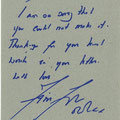 I am so sorry that
you could not make it.
Thank you for your kind
words in your letter.
With love